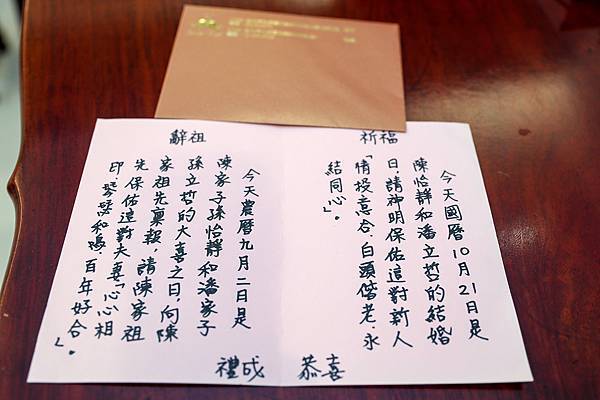 祈福
今天國曆10月21日是
陳怡靜和潘立哲的結婚
日,請神明保佑這對新人
「情投意合.白頭偕老.永
結同心」。
恭喜
辭祖
今天農曆九月二日是
陳家子孫怡靜和潘家子
孫立哲的大喜之日,向陳
家祖先稟報,請陳家祖
先保佑這對夫妻「心心相
印.琴瑟和鳴.百年好合」。
禮成